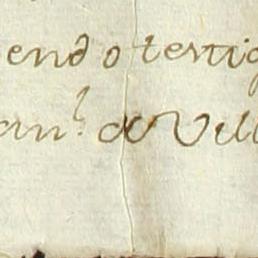 endo testig
ern.l de Vill